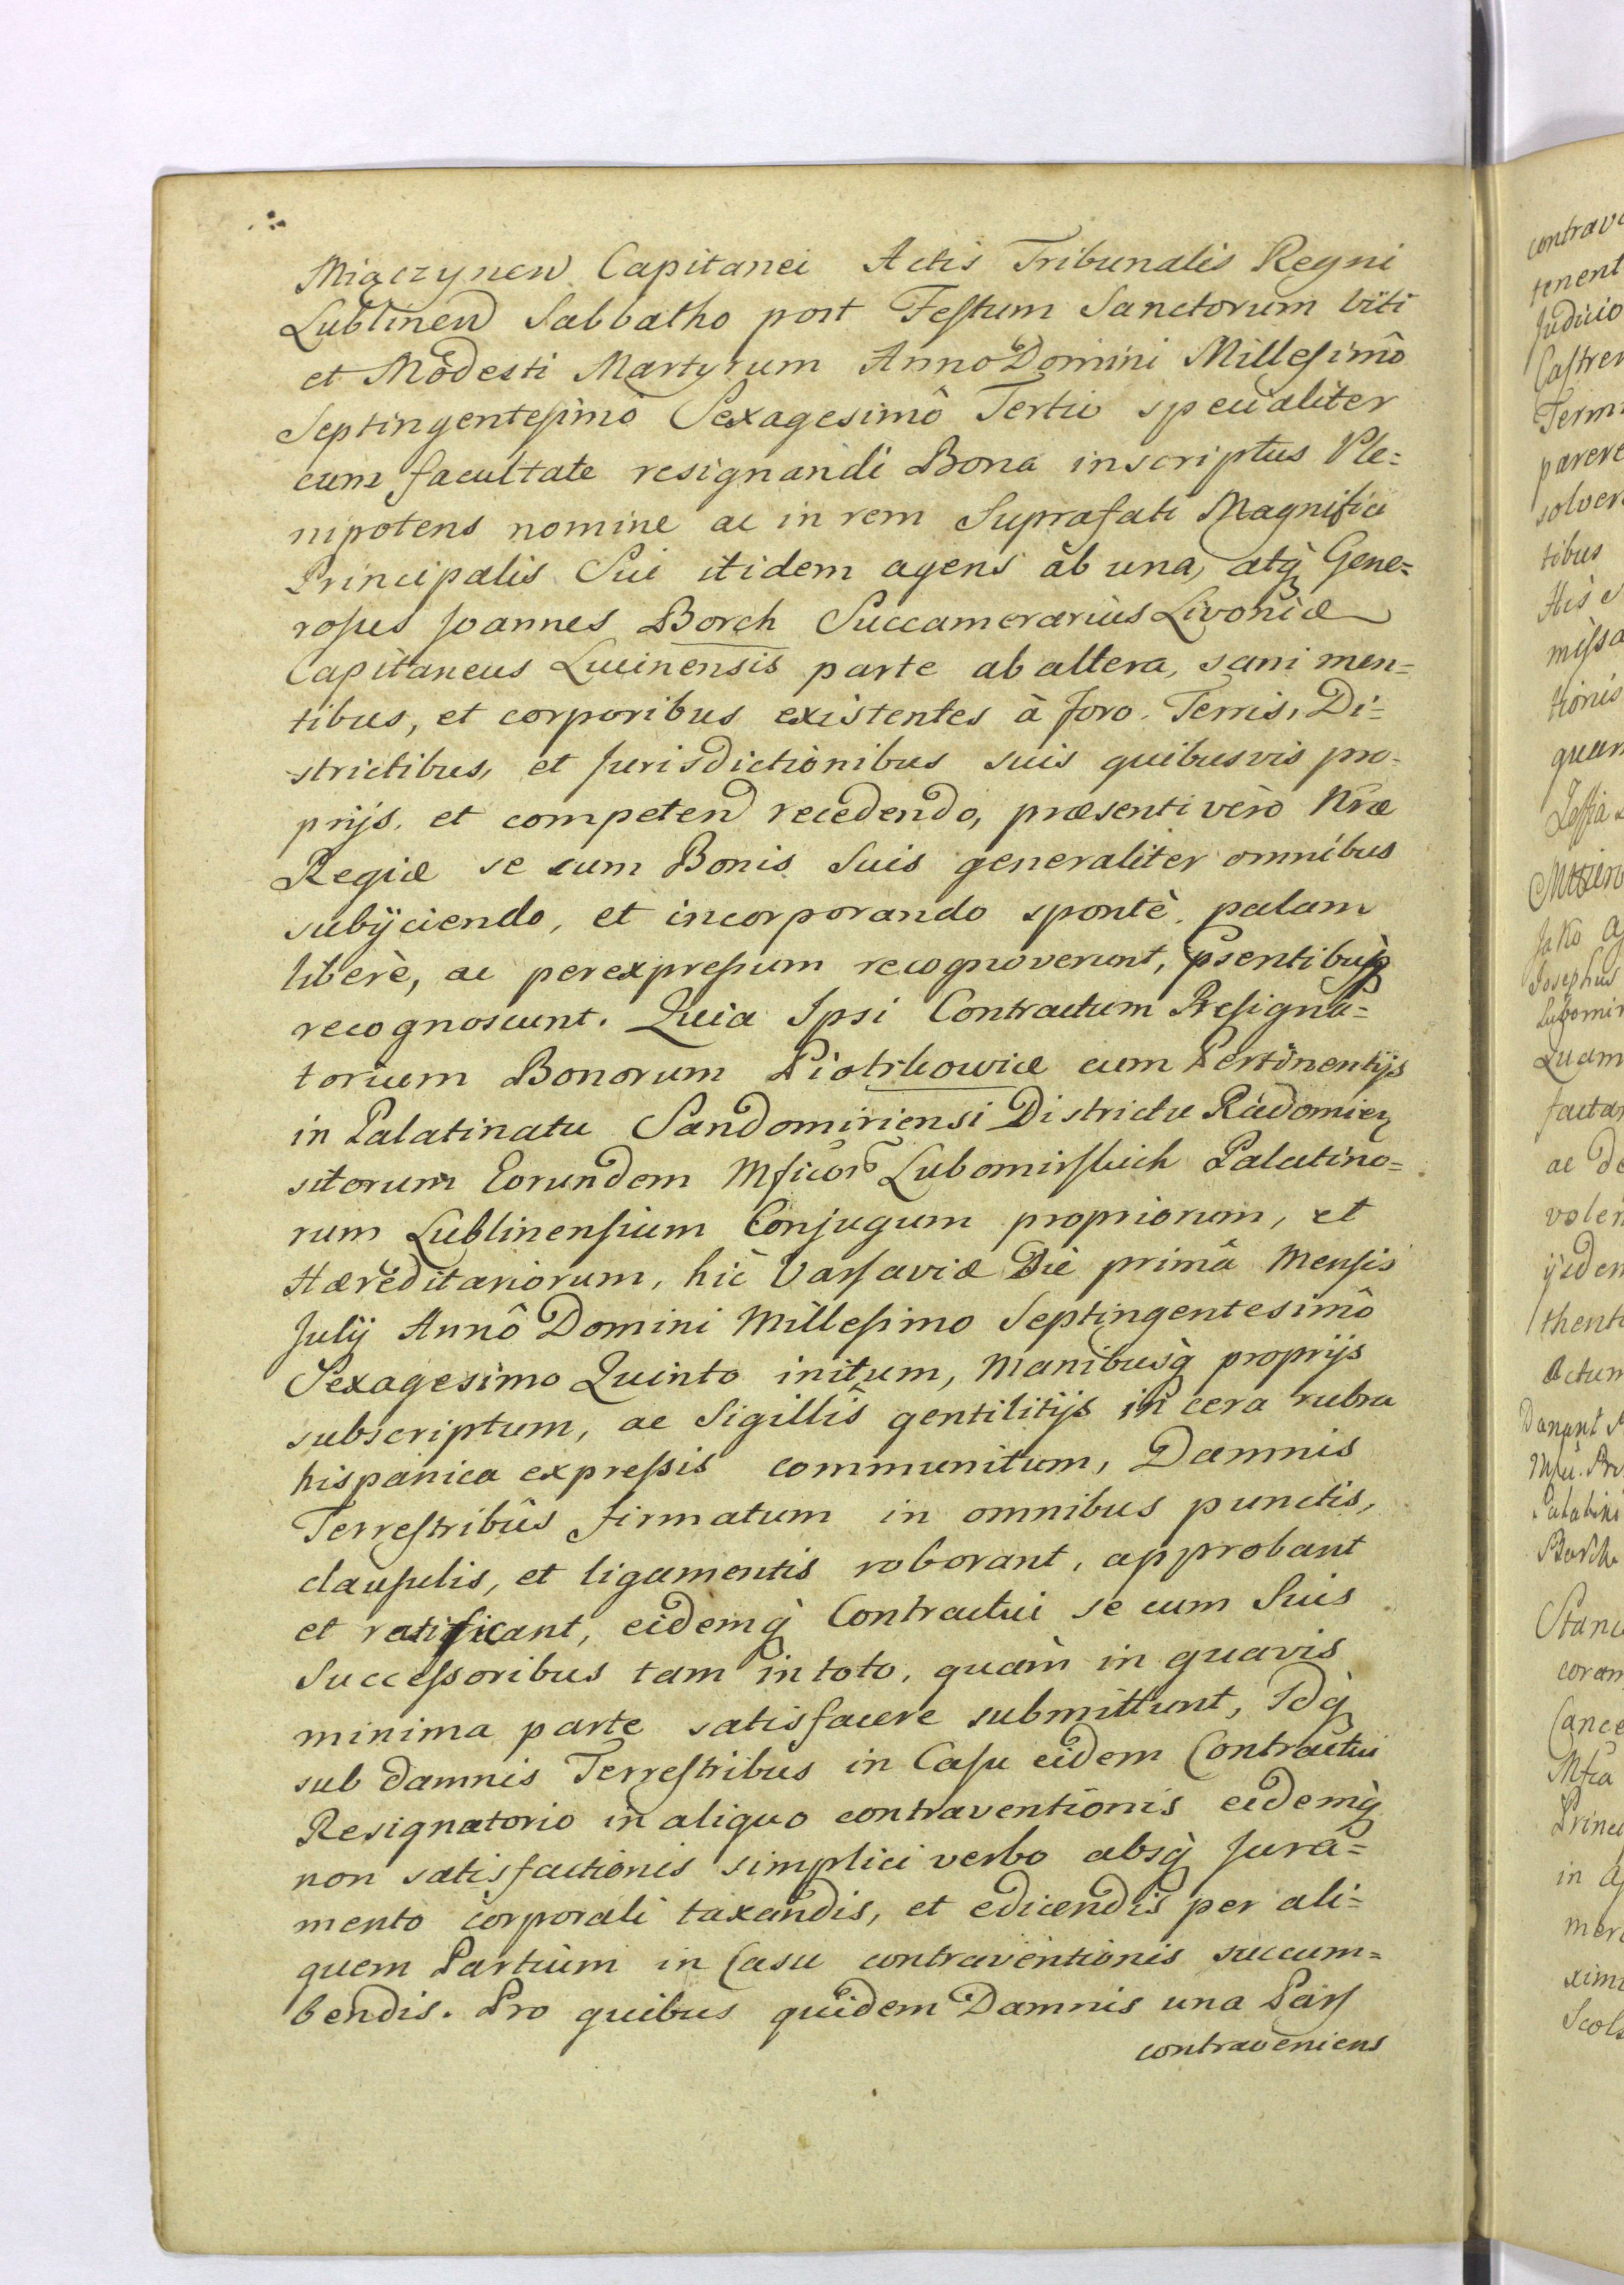 Miączynen Capitanei Actis Tribunalis Regni
Lublinen Sabbatho post Festum Sanctorum Viti
et Modesti Martyrum Anno Domini Millesimô
Septingentesimô Sexagesimô Tertio specialiter
cum facultate resignandi Bona inscriptus Ple=
nipotens nomine ac in rem Suprafati Magnifici
Principalis Sui itidem agens ab una, atq̀ Gene=
rosus Joannes Borch Succamerarius Livoniæ
Capitaneus Lucinensis parte ab altera, sani men=
tibus, et corporibus existentes à foro, Terris, Di=
strictibus, et Jurisdictionibus suis quibusvis pro-
prijs, et competen recedendo, præsenti vero Nræ
Regiæ se cum Bonis Suis generaliter omnibus
subijciendo, et incorporando spontè, palam
liberè, ac per expressum recognoverunt, psentibusq̀
recognoscunt. Quia Ipsi Contractum Resigna=
torium Bonorum Piotrkowice cum Pertinentijs
in Palatinatu Sandomiriensi Districtu Radomien
sitorum Eorundem Mficor Lubomirskich Palatino=
rum Lublinensium Conjugum propriorum, et
Hæreditariorum, hic Varsaviæ Die primâ Mensis
Julij Annô Domini Millesimo Septingentesimô
Sexagesimo Quinto initum, Manibusq̀ proprijs
subscriptum, ac Sigillis gentilitijs in cera rubra
hispanica expressis communitum, Damnis
Terrestribûs firmatum in omnibus punctis,
clausulis, et ligamentis roborant, approbant
et ratificant, eidemq̀ Contractui se cum Suis
Successoribus tam in toto, quàm in quavis
minima parte satisfacere submittunt, Idq̀
sub damnis Terrestribus in Casu eidem Contractui
Resignatorio in aliquo contraventionis eidemq̀
non satisfactionis simplici verbo absq̀ Jura=
mento corporali taxandis, et edicendis per ali=
quem Partium in Casu contraventionis succum=
bendis. Pro quibus quidem Damnis una Pars
contraveniens